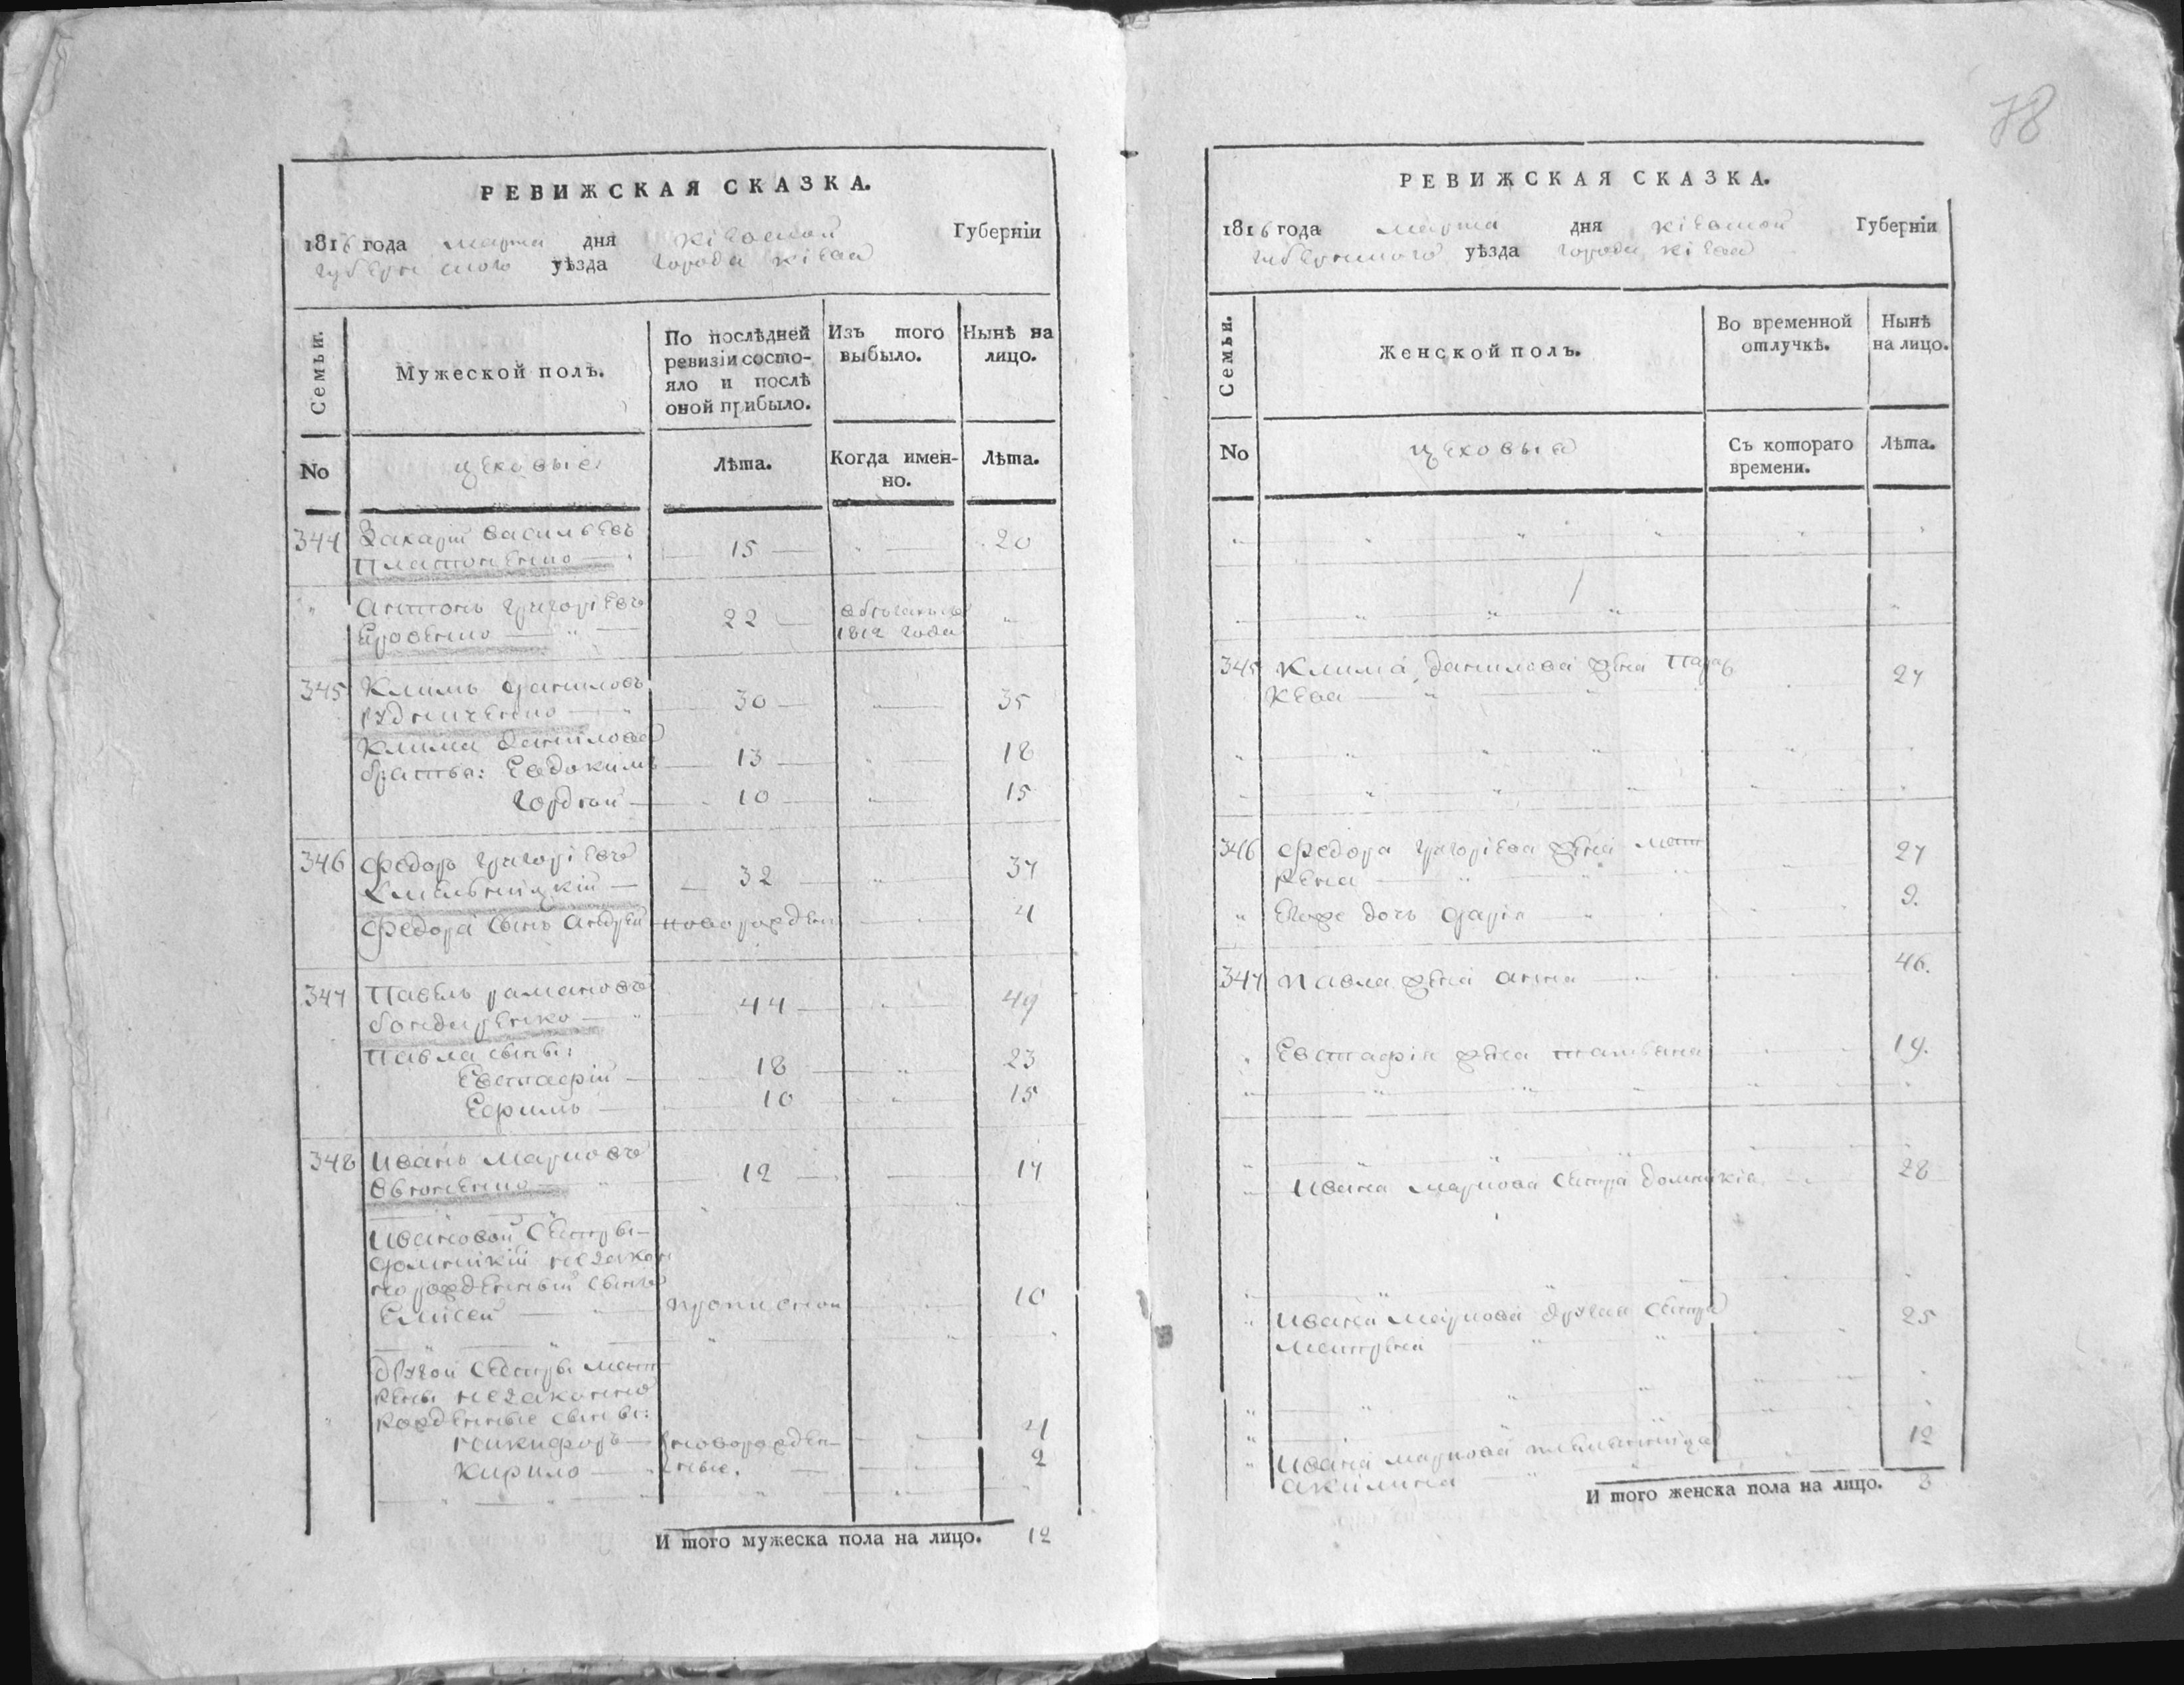 78
РЕВИЖСКАЯ СКАЗКА.
1816 года марта дня Кіевской Губерніи
губернского уѣзда города Кіева
Семьи.
Мужеской полъ.
По послѣдней ревизіи состо-
яло и послѣ
оной прибыло.
Изъ того
выбыло.
Нынѣ на
лицо.
No
цеховые
Лѣта.
Когда имен-
но.
Лѣта.
344 Захарій Васильевъ
Платоненко 15 20
Антонъ Григоріевъ
22
1812 года
345 Климъ Даниловъ
Рудниченко 30 35
Клима Данилова
братья: Евдокимъ 13 18
Гордѣй 10 15
346 Федоръ Григоріевъ
Хмельницкій 32 37
Федора сынъ Андрей новорожден 4
347 Павелъ Романовъ
Бондаренко 44 49
Павла сыны:
Евстафій 18 23
Ефимъ 10 15
348 Иванъ Марковъ
12 17
Ивановой сестры
Домникіи незакон
норожденный сынъ
Елисей прописной 10
другой сестры Мат
рены незаконно
рожденные сыны:
Никифоръ новорожден 4
Кирило ные. 2
И того мужеска пола на лицо. 12
РЕВИЖСКАЯ СКАЗКА.
1816 года марта дня Кіевской Губерніи
губернского уѣзда города Кіева
Семьи.
Женской полъ.
Во временной
отлучкѣ.
Нынѣ
на лицо.
No
цеховыя
Съ котораго
времени.
Лѣта.
345 Клима Данилова жена Парас
кева 27
346 Федора Григоріева жена Мат
рена 27
Его же дочь Дарія 9.
347 Павла жена Анна 46.
Евстафія жена Татьяна 19.
Ивана Маркова сестра Домникія 28
Ивана Маркова другая сестра
Матрена 25
Ивана Маркова племянница
Акилина 12
И того женска пола на лицо. 8